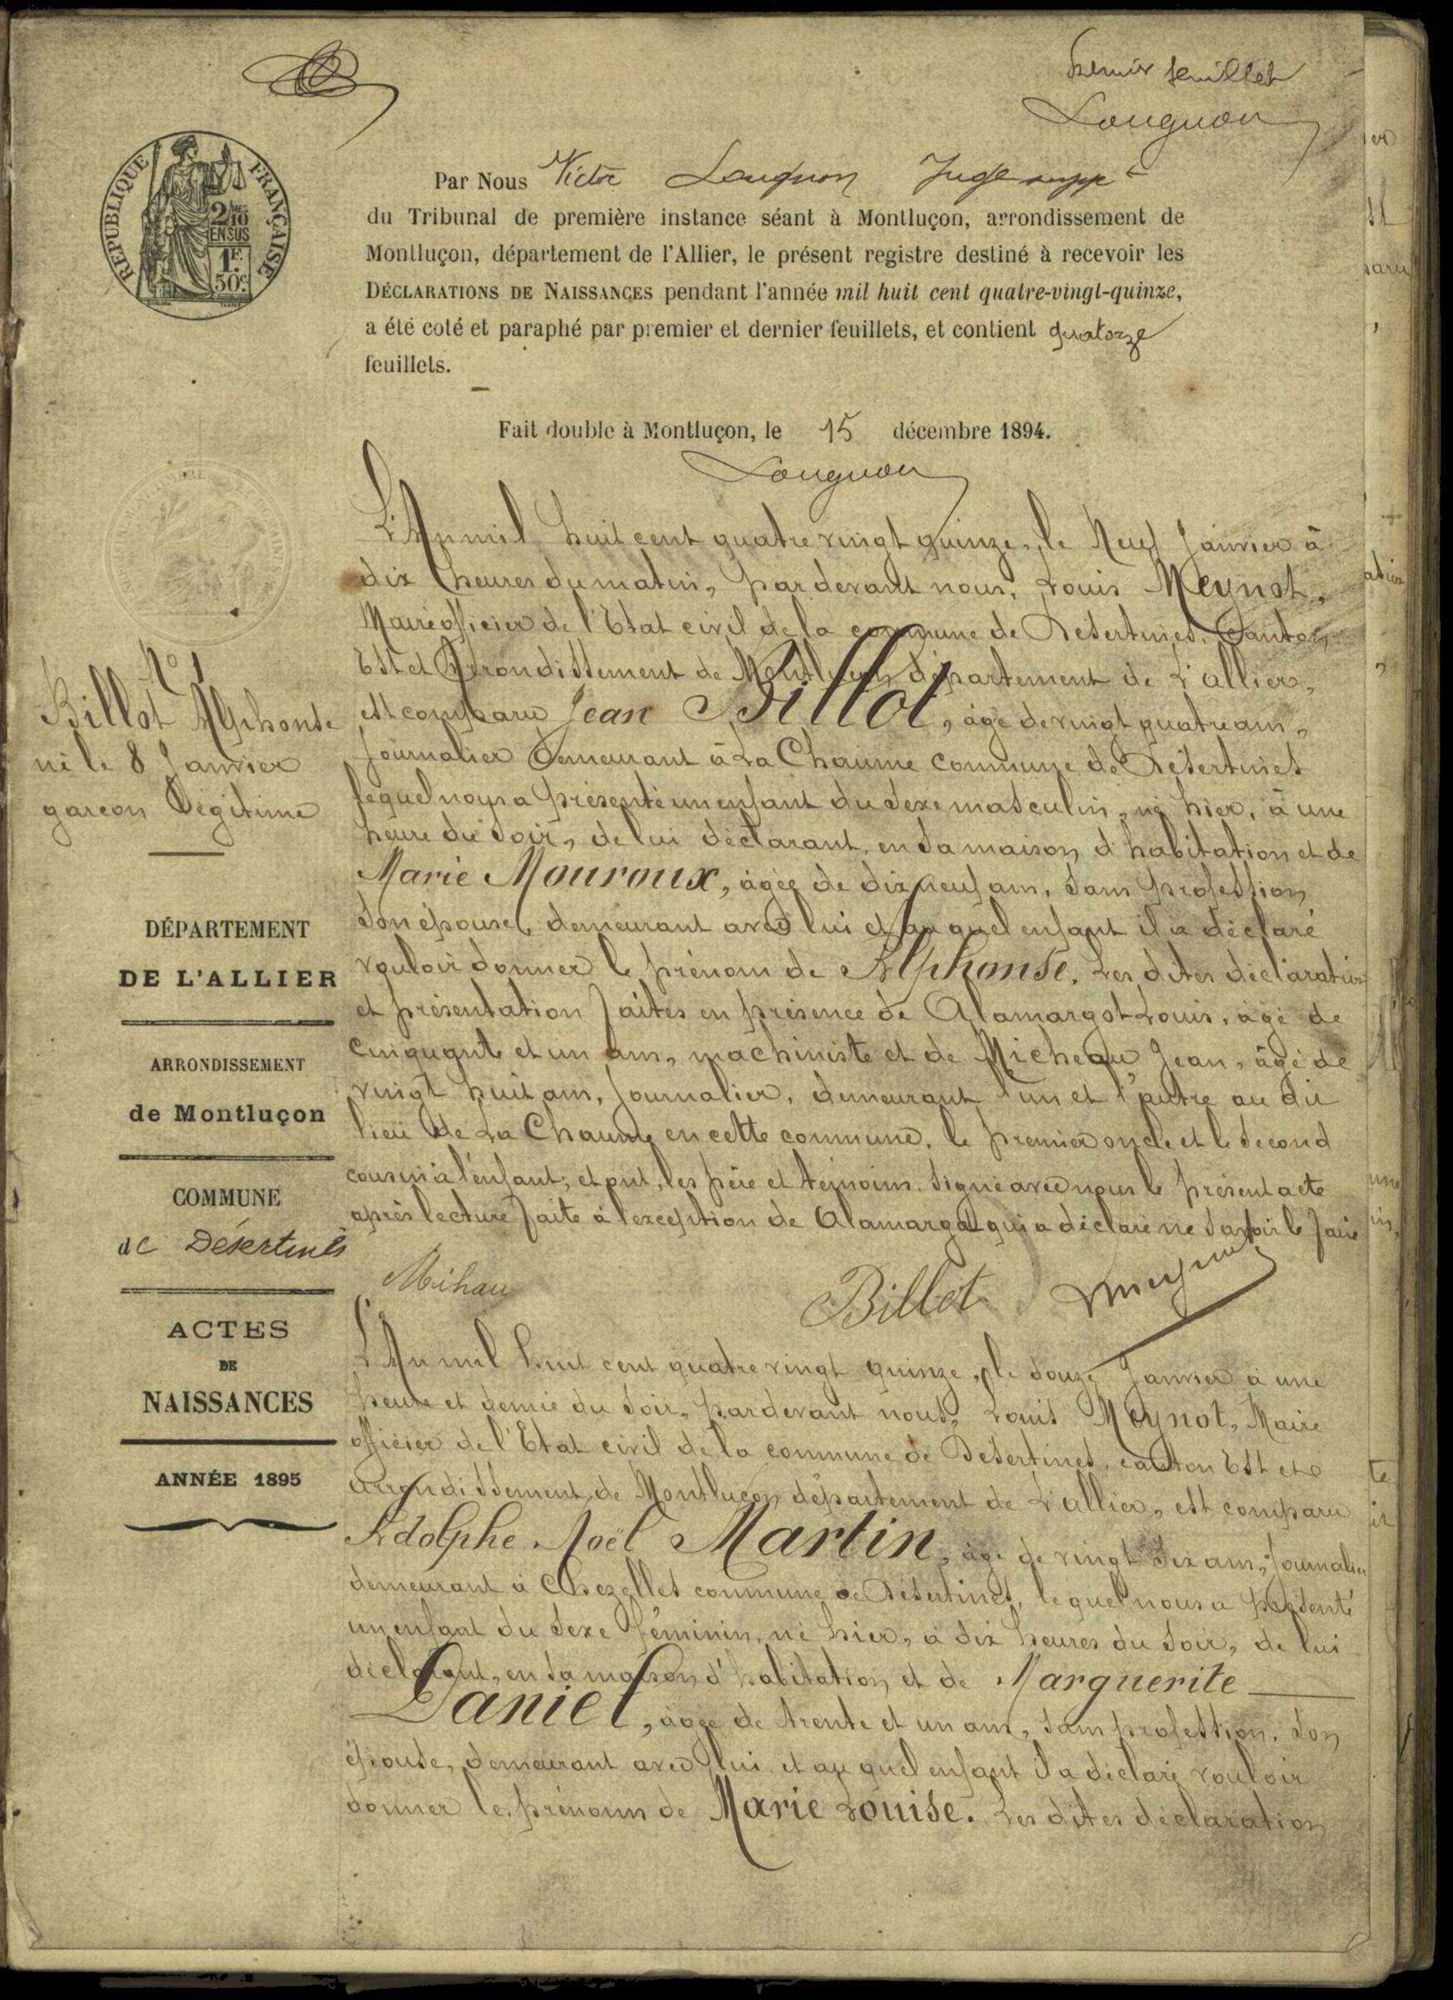 Premier feuillet
Lougnon
RÉPUBLIQUE FRANÇAISE
2/10
EN SUS
1F
50c
Par Nous Victor Lougnon Juge suppt
du Tribunal de première instance séant à Montluçon, arrondissement de
Montluçon, département de l'Allier, le présent registre destiné à recevoir les
DÉCLARATIONS DE NAISSANCES pendant l'année mil huit cent quatre-vingt-quinze,
a été coté et paraphé par premier et dernier feuillets, et contient quatorze
feuillets.
Fait double à Montluçon, le 15 décembre 1894.
Lougnon
N° 1
Billot Alphonse
né le 8 Janvier
garcon Légitime
DÉPARTEMENT
DE L'ALLIER
ARRONDISSEMENT
de Montluçon
COMMUNE
de Désertines
ACTES
DE
NAISSANCES
ANNÉE 1895
L'An mil huit cent quatre vingt quinze, le Neuf Janvier à
dix heures du matin, par devant nous, Louis Meynot,
Maire officier de l'Etat civil de la commune de Désertines, Canton
Est et Arrondissement de Montluçon département de L'allier,
est comparu Jean Billot, âgé de vingt quatre ans,
Journalier demeurant à La Chaume commune de Désertines
lequel nous a présenté un enfant du sexe masculin, né hier, à une
heure du soir, de lui déclarant, en sa maison d'habitation et de
Marie Mouroux, âgée de dix neuf ans, sans profession,
son épouse, demeurant avec lui et au quel enfant il a déclaré
vouloir donner le prénom de Alphonse. Les dites déclaration
et présentation faites en présence de Alamargot Louis, âgé de
cinquante et un ans, machiniste et de Micheau Jean, âgé de
vingt huit ans, Journalier, demeurant l'un et l'autre au dit
lieu de La Chaume en cette commune, le premier oncle et le second
cousin à l'enfant; et ont, les père et témoins, signé avec nous le présent acte
après lecture faite à l'exception de Alamargot qui a déclaré ne savoir le faire
Mihau Billot Meynot
L'An mil huit cent quatre vingt quinze, le douze Janvier à une
heure et demie du soir, par devant nous, Louis Meynot, Maire
officier de l'Etat civil de la commune de Désertines, canton Est et
arrondissement de Montluçon département de L'allier, est comparu
Adolphe Noël Martin, âgé de vingt six ans, Journalier
demeurant à Chezelles commune de Désertines, lequel nous a présenté
un enfant du sexe féminin, né hier, à dix heures du soir, de lui
déclarant, en sa maison d'habitation, et de Marguerite
Daniel, âgée de trente et un ans, sans profession, son
épouse, demeurant avec lui et au quel enfant il a déclaré vouloir
donner les prénoms de Marie Louise. Les dites déclaration